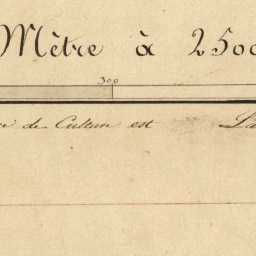 Mètre à 2500
300
de Culture est La